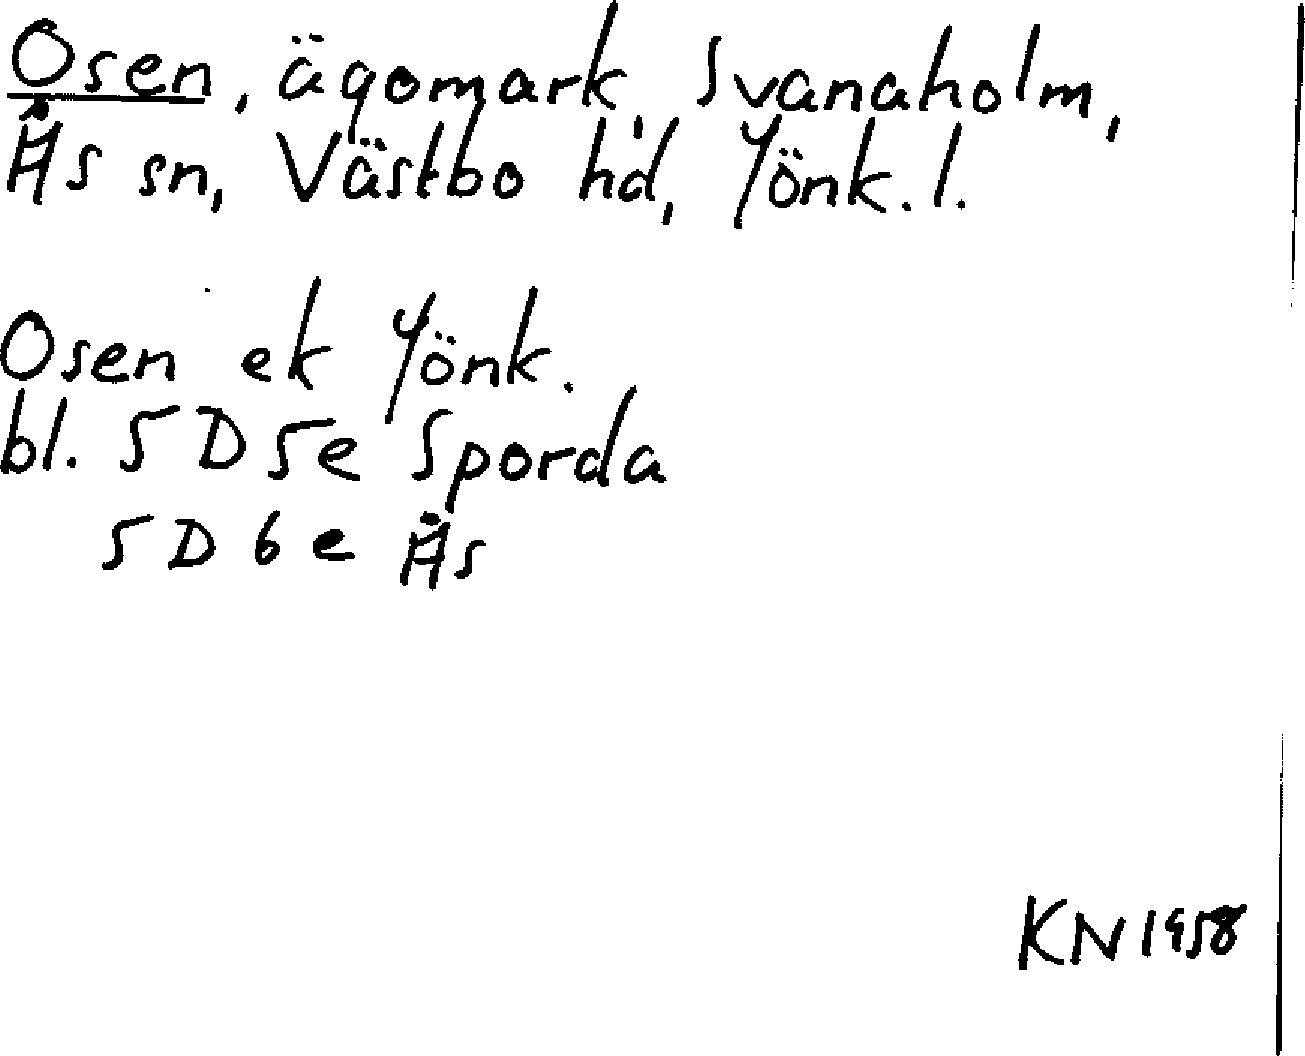 Osen, ägomark, Svanaholm,
Ås sn, Västbo hd, Jönk. l.
Osen ek Jönk.
bl. 5D5e Sporda
5D6e Ås
KN 1958